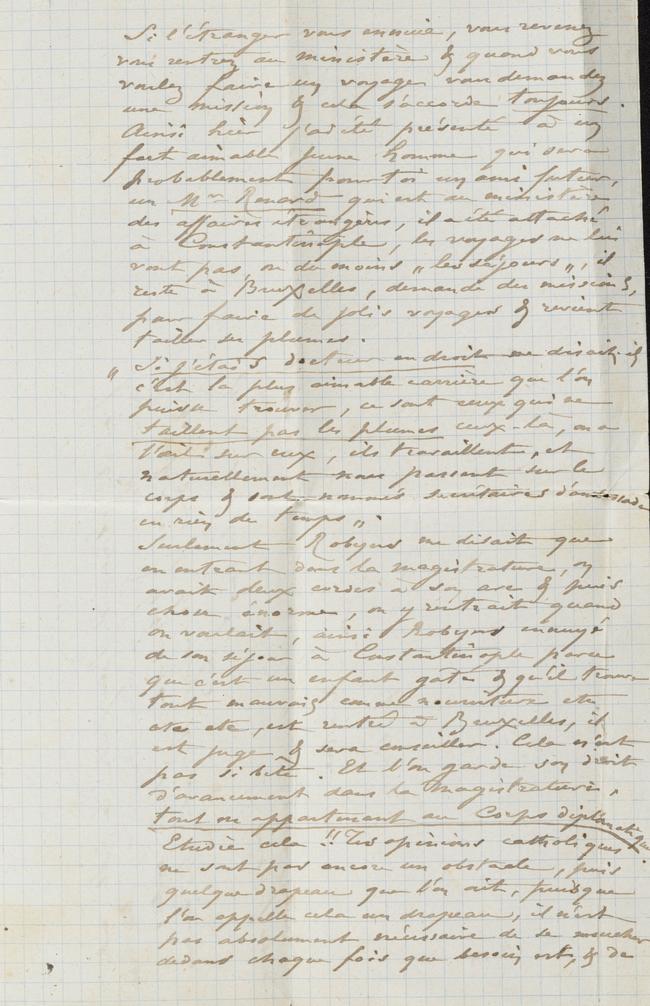 Si l'étranger vous ennuie, vous revenez
vous rentrez au ministère & quand vous
voulez faire un voyage vous demandez
une mission & cela s'accorde toujours.
Ainsi hier j'ai été présenté à un
fort aimable jeune homme qui sera
probablement pour toi un ami futur,
un Mr Renard qui est au ministère
des affaires étrangères, il a été attaché
à Constantinople, les voyages ne lui
vont pas, ou du moins „les séjours", il
reste à Bruxelles, demande des missions,
pour faire de jolis voyages & revient
tailler ses plumes.
„Si j'étais docteur en droit me disait-il
c'est la plus aimable carrière que l'on
puisse trouver, ce sont ceux qui ne
taillent pas les plumes ceux-là, on a
l'œil sur eux, ils travaillent, et
naturellement nous passent sur le
corps & sont nommés secrétaires d'ambassade
en rien de temps".
Seulement Robyns me disait que
en entrant dans la magistrature, on
avait deux cordes à son arc & puis
chose énorme, on y rentrait quand
on voulait, ainsi Robyns ennuyé
de son séjour à Constantinople parce
que c'est un enfant gaté & qu'il trouve
tout mauvais comme nourriture etc
etc etc, est rentré à Bruxelles, il
est juge & sera conseiller. Cela n'est
pas si bête. Et l'on garde son droit
d'avancement dans la magistrature,
tout en appartenant au Corps diplomatique.
Etudie cela !! Tes opinions catholiques
ne sont pas encore un obstacle, puis
quelque drapeau que l'on ait, puisque
l'on appelle cela un drapeau, il n'est
pas absolument nécessaire de se moucher
dedans chaque fois que besoin est, & de